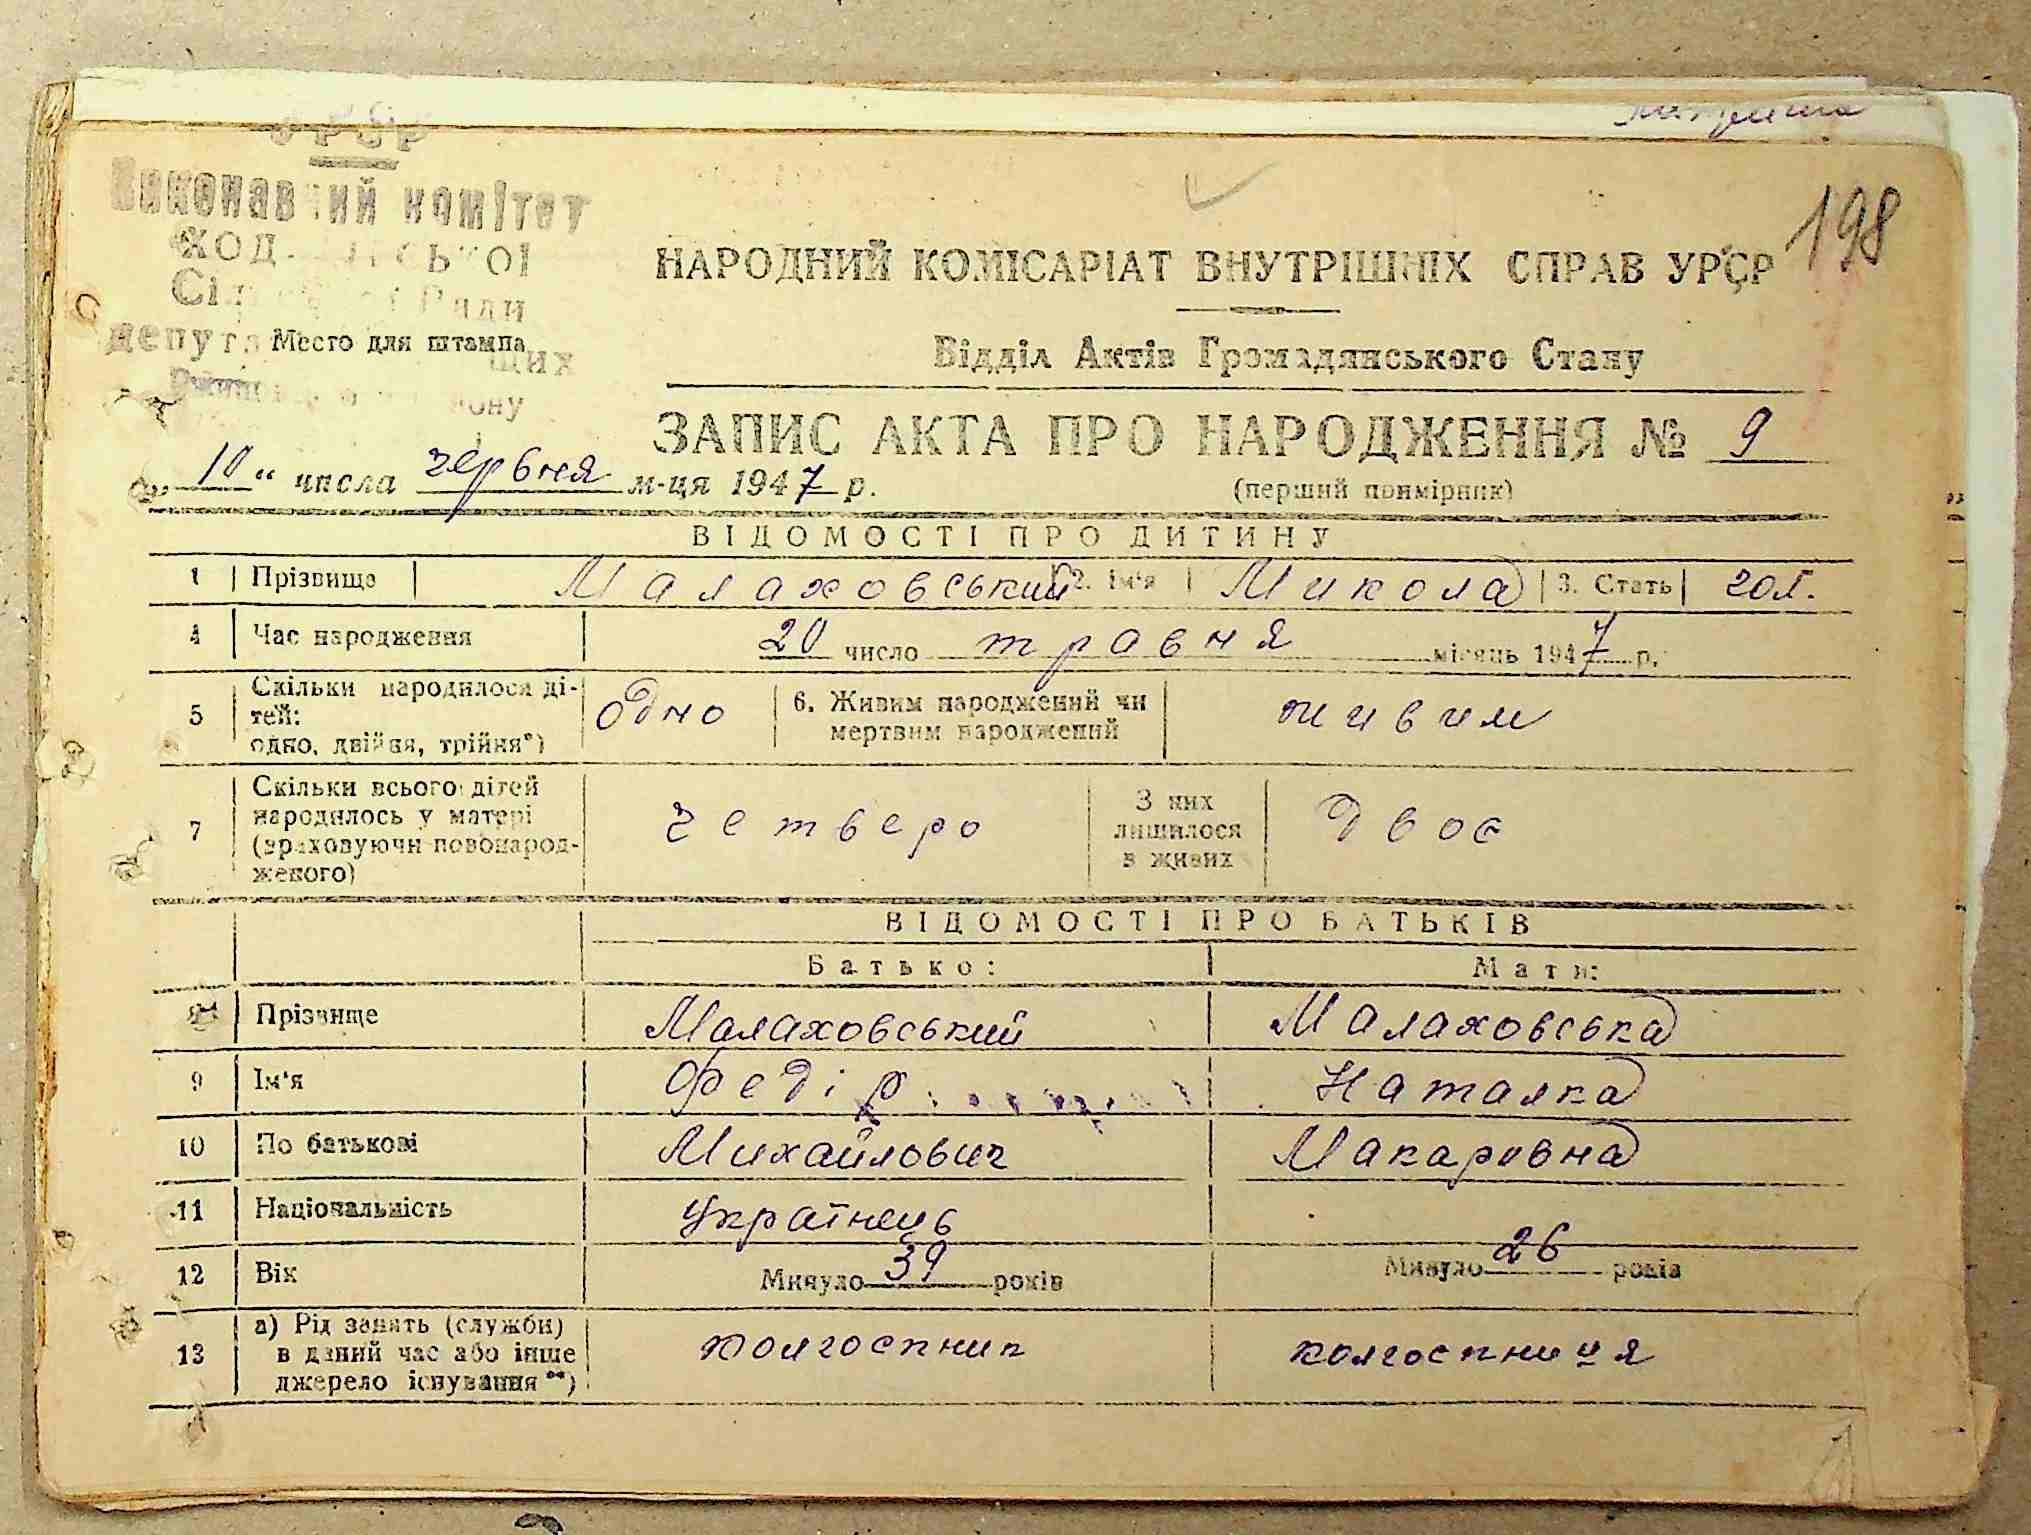 УРСР
Виконавчий комітет
Сільської Ради
Место для штампа
198
НАРОДНИЙ КОМІСАРІАТ ВНУТРІШНІХ СПРАВ УРСР
Відділ Актів Громадянського Стану
ЗАПИС АКТА ПРО НАРОДЖЕННЯ № 9
(перший примірник)
„10“ числа червня м-ця 1947 р.
ВІДОМОСТІ ПРО ДИТИНУ
1 Прізвище Малаховський 2. Ім'я Микола 3. Стать чол.
4 Час народження 20 число травня місяць 1947 р.
5 Скільки народилося ді-
тей:
одно, двійня, трійня*)
одно
6. Живим народжений чи
мертвим народжений
живим
7 Скільки всього дітей
народилось у матері
(враховуючи новонарод-
женого)
четверо
З них
лишилося
в живих
двоє
ВІДОМОСТІ ПРО БАТЬКІВ
Батько: Мати:
8 Прізвище Малаховський Малаховська
9 Ім'я Федір Наталка
10 По батькові Михайлович Макаровна
11 Національність Українець
12 Вік Минуло 39 років Минуло 26 років
13 а) Рід занять (служби)
в даний час або інше
джерело існування**)
колгоспник колгоспниця